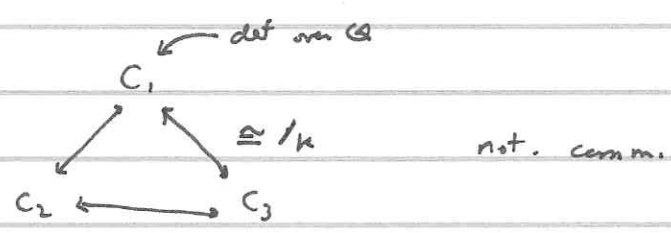 def over Q
C₁
≅ /k
not. comm.
C₂ C₃